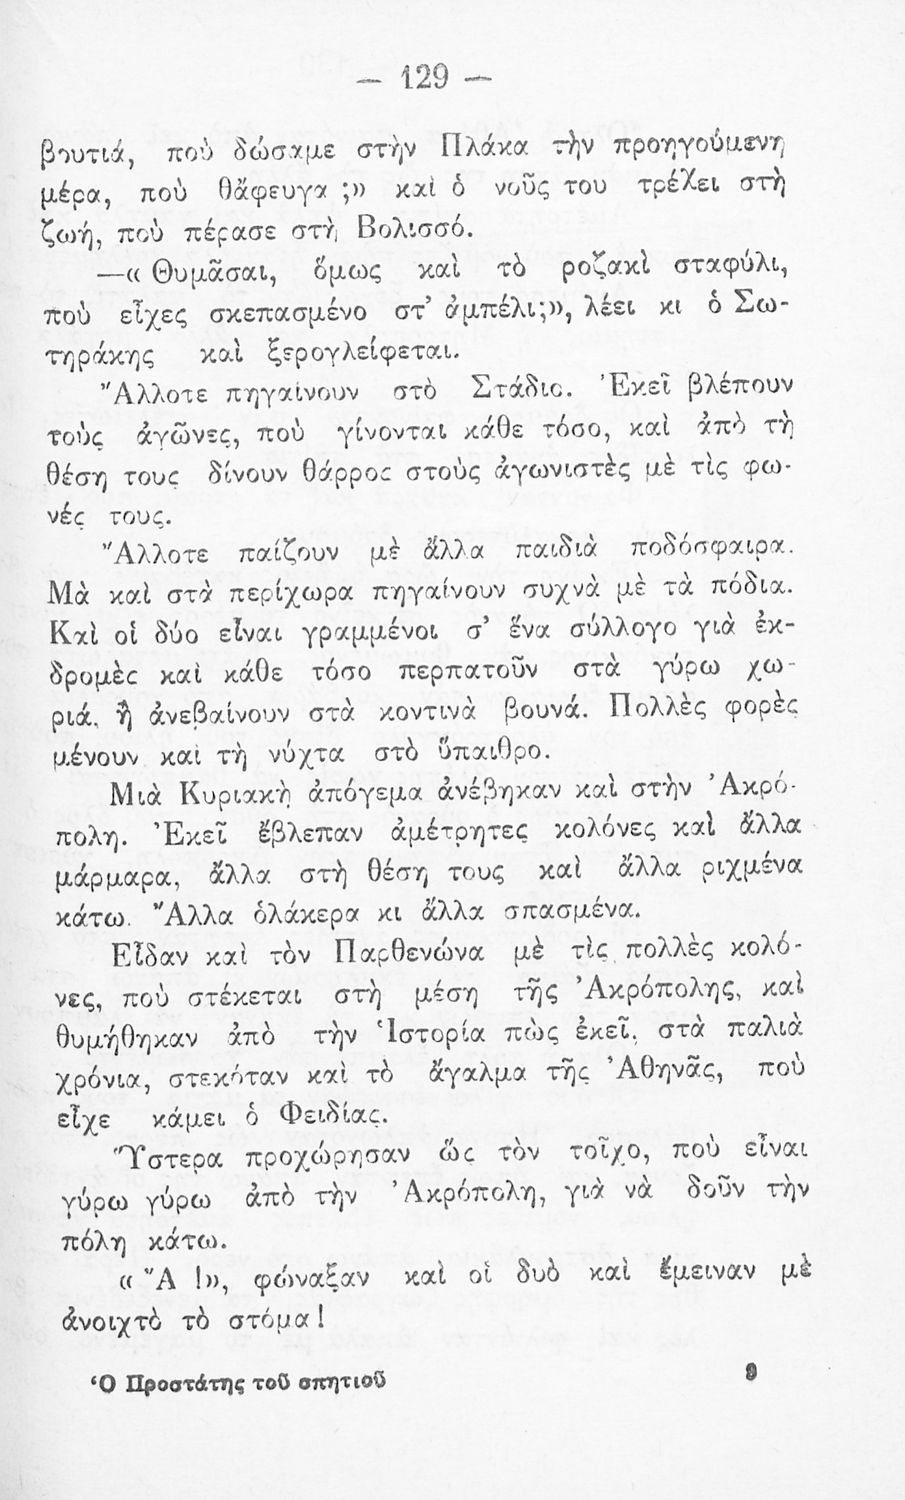 — 129 —
βουτιά, ποὺ δώσαμε στὴν Πλάκα τὴν προηγούμενη
μέρα, ποὺ θἄφευγα ;» καὶ ὁ νοῦς του τρέχει στὴ
ζωή, ποὺ πέρασε στὴ Βολισσό.
—« Θυμᾶσαι, ὅμως καὶ τὸ ροζακὶ σταφύλι,
ποὺ εἶχες σκεπασμένο στ’ ἀμπέλι;», λέει κι ὁ Σω-
τηράκης καὶ ξερογλείφεται.
Ἄλλοτε πηγαίνουν στὸ Στάδιο. Ἐκεῖ βλέπουν
τοὺς ἀγῶνες, ποὺ γίνονται κάθε τόσο, καὶ ἀπὸ τὴ
θέση τους δίνουν θάρρος στοὺς ἀγωνιστὲς μὲ τὶς φω-
νές τους.
Ἄλλοτε παίζουν μὲ ἄλλα παιδιὰ ποδόσφαιρα.
Μὰ καὶ στὰ περίχωρα πηγαίνουν συχνὰ μὲ τὰ πόδια.
Καὶ οἱ δύο εἶναι γραμμένοι σ’ ἕνα σύλλογο γιὰ ἐκ-
δρομὲς καὶ κάθε τόσο περπατοῦν στὰ γύρω χω-
ριά, ἢ ἀνεβαίνουν στὰ κοντινὰ βουνά. Πολλὲς φορὲς
μένουν καὶ τὴ νύχτα στὸ ὕπαιθρο.
Μιὰ Κυριακὴ ἀπόγεμα ἀνέβηκαν καὶ στὴν Ἀκρό-
πολη. Ἐκεῖ ἔβλεπαν ἀμέτρητες κολόνες καὶ ἄλλα
μάρμαρα, ἄλλα στὴ θέση τους καὶ ἄλλα ριχμένα
κάτω. Ἄλλα ὁλάκερα κι ἄλλα σπασμένα.
Εἶδαν καὶ τὸν Παρθενώνα μὲ τὶς πολλὲς κολό-
νες, ποὺ στέκεται στὴ μέση τῆς Ἀκρόπολης, καὶ
θυμήθηκαν ἀπὸ τὴν Ἱστορία πὼς ἐκεῖ, στὰ παλιὰ
χρόνια, στεκόταν καὶ τὸ ἄγαλμα τῆς Ἀθηνᾶς, ποὺ
εἶχε κάμει ὁ Φειδίας.
Ὕστερα προχώρησαν ὥς τὸν τοῖχο, ποὺ εἶναι
γύρω γύρω ἀπὸ τὴν Ἀκρόπολη, γιὰ νὰ δοῦν τὴν
πόλη κάτω.
« Ἄ !», φώναξαν καὶ οἱ δυὸ καὶ ἔμειναν μὲ
ἀνοιχτὸ τὸ στόμα!
Ὁ Προστάτης τοῦ σπητιοῦ 9